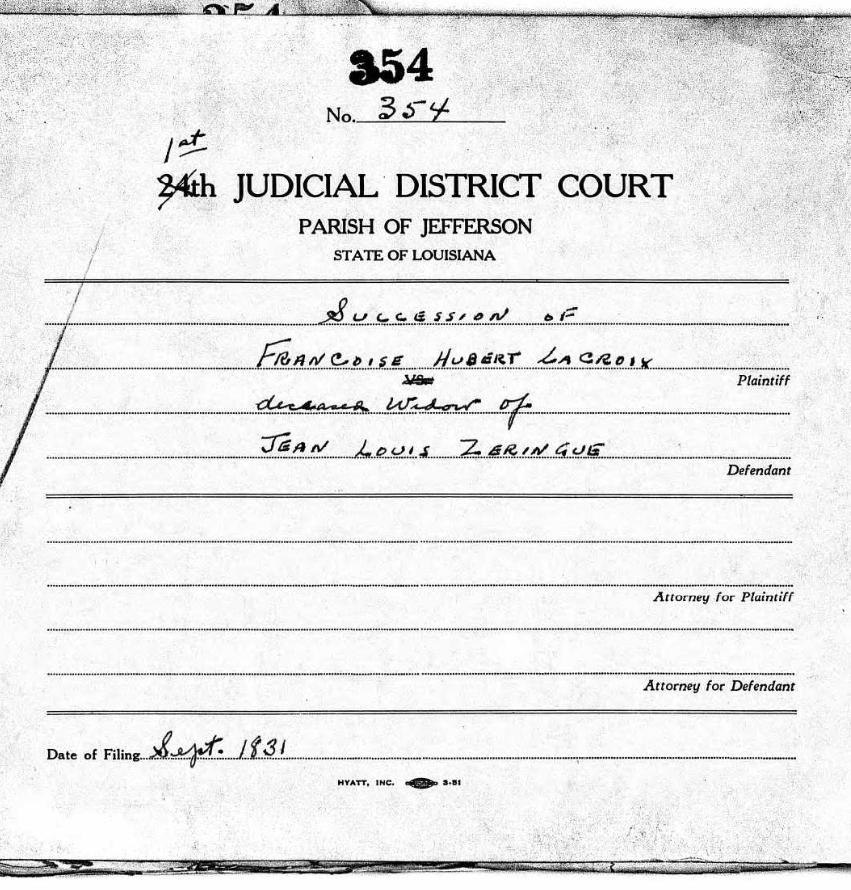 354
354
No. 354
1st
24th JUDICIAL DISTRICT COURT
PARISH OF JEFFERSON
STATE OF LOUISIANA
SUCCESSION OF
FRANCOISE HUBERT LACROIX
VS.
Plaintiff
deceased Widow of
JEAN LOUIS ZERINGUE
Defendant
Attorney for Plaintiff
Attorney for Defendant
Date of Filing Sept. 1831
HYATT, INC. 3-51